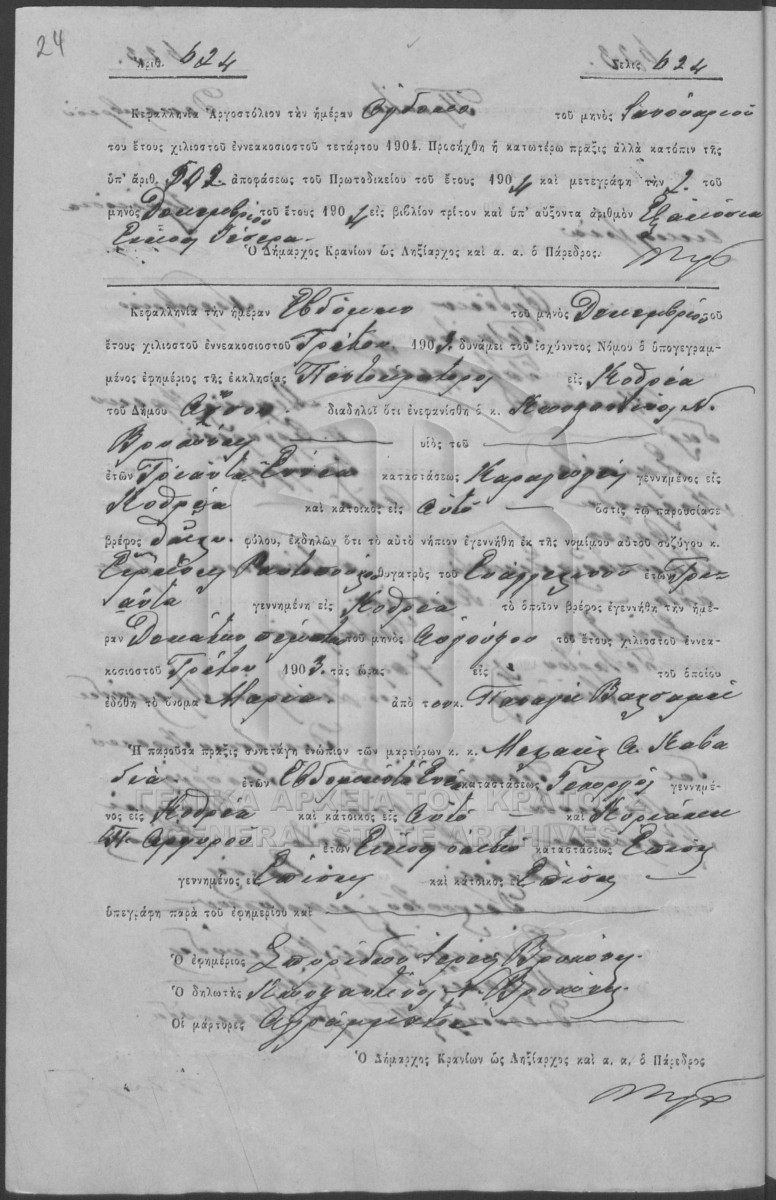 24
Ἀριθ. 624 Σελὶς 624
Κεφαλληνία Ἀργοστόλιον τὴν ἡμέραν Ὀγδόην τοῦ μηνὸς Ἰανουαρίου
τοῦ ἔτους χιλιοστοῦ ἐννεακοσιοστοῦ τετάρτου 1904. Προσήχθη ἡ κατωτέρω πρᾶξις ἀλλὰ κατόπιν τῆς
ὑπ' ἀριθ. 502 ἀποφάσεως τοῦ Πρωτοδικείου τοῦ ἔτους 1904 καὶ μετεγράφη τὴν 2 τοῦ
μηνὸς Δεκεμβρίου τοῦ ἔτους 1904 εἰς βιβλίον τρίτον καὶ ὑπ' αὔξοντα ἀριθμὸν Ἑξακόσια
Εἴκοσι Τέσσερα.
Ὁ Δήμαρχος Κρανίων ὡς Ληξίαρχος καὶ α. α. ὁ Πάρεδρος.
Κεφαλληνία τὴν ἡμέραν Ἑβδόμην τοῦ μηνὸς Δεκεμβρίου τοῦ
ἔτους χιλιοστοῦ ἐννεακοσιοστοῦ Τρίτου 1903. δυνάμει τοῦ ἰσχύοντος Νόμου ὁ ὑπογεγραμ-
μένος ἐφημέριος τῆς ἐκκλησίας Παντοκράτορος εἰς Κοθρέα
τοῦ Δήμου διαδηλοῖ ὅτι ἐνεφανίσθη ὁ κ. Κωνσταντῖνος Ν.
υἱὸς τοῦ
ἐτῶν Τριάντα Ἐννέα καταστάσεως γεννημένος εἰς
Κοθρέα καὶ κάτοικος εἰς Αὐτό ὅστις τῷ παρουσίασε
βρέφος θήλυ φύλου, ἐκδηλῶν ὅτι τὸ αὐτὸ νήπιον ἐγεννήθη ἐκ τῆς νομίμου αὐτοῦ συζύγου κ.
Εἰρήνης θυγατρὸς τοῦ Εὐαγγελινοῦ ἐτῶν Τρι-
άντα γεννημένη εἰς Κοθρέα τὸ ὁποῖον βρέφος ἐγεννήθη τὴν ἡμέ-
ραν Δεκάτην πέμπτην τοῦ μηνὸς Αὐγούστου τοῦ ἔτους χιλιοστοῦ ἐννεα-
κοσιοστοῦ Τρίτου 1903. τὰς ὥρας εἰς τοῦ ὁποίου
ἐδόθη τὸ ὄνομα Μαρία. ἀπὸ τον κ. Παναγῆ Βαλσαμῆ
Ἡ παροῦσα πρᾶξις συνετάγη ἐνώπιον τῶν μαρτύρων κ. κ. Μιχαὴλ Α. Καβα
διᾶ ἐτῶν Ἑβδομήντα Ἑνός καταστάσεως Γεωργός γεννημέ-
νος εἰς Κοθρέα καὶ κάτοικος εἰς Αὐτό καὶ Κυριάκου
Π. Ἀργυροῦ ἐτῶν Εἴκοσι ὀκτώ καταστάσεως Ἐπίσης
γεννημένος εἰς Ἐπίσης καὶ κάτοικος εἰς Ἐπίσης
ὑπεγράφη παρὰ τοῦ ἐφημερίου καὶ
Ὁ ἐφημέριος Σπυρίδων ἱερεὺς
Ὁ δηλωτὴς Κωνσταντῖνος Ν.
Οἱ μάρτυρες Ἀγράμματοι
Ὁ Δήμαρχος Κρανίων ὡς Ληξίαρχος καὶ α. α. ὁ Πάρεδρος
ΓΕΝΙΚΑ ΑΡΧΕΙΑ ΤΟΥ ΚΡΑΤΟΥΣ
GENERAL STATE ARCHIVES